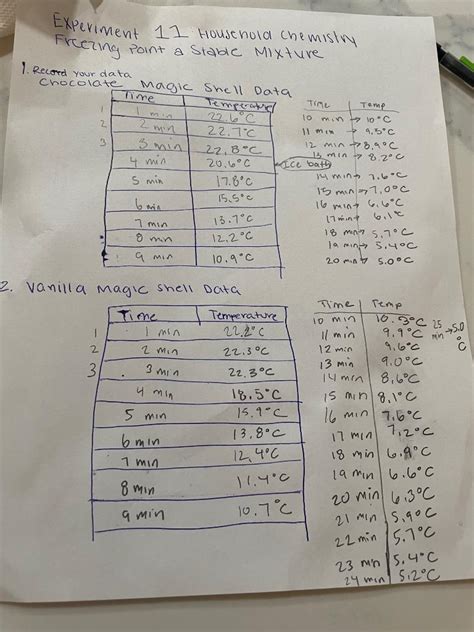 Experiment 11 Household Chemistry
Freezing Point a Stable Mixture
1. Record your data
Chocolate Magic Shell Data
Time Temperature
1 1 min 22.6°C
2 2 min 22.7°C
3 3 min 22.8°C
4 min 20.6°C ← Ice bath
5 min 17.8°C
6 min 15.5°C
7 min 13.7°C
8 min 12.2°C
9 min 10.9°C
Time Temp
10 min → 10°C
11 min → 9.5°C
12 min → 8.9°C
13 min → 8.2°C
14 min → 7.6°C
15 min → 7.0°C
16 min → 6.6°C
17 min 6.1°C
18 min → 5.7°C
19 min → 5.4°C
20 min → 5.0°C
2. Vanilla Magic Shell Data
Time Temperature
1 1 min 22.2°C
2 2 min 22.3°C
3 3 min 22.3°C
4 min 18.5°C
5 min 15.9°C
6 min 13.8°C
7 min 12.4°C
8 min 11.4°C
9 min 10.7°C
Time Temp
10 min 10.3°C
11 min 9.9°C
12 min 9.6°C
13 min 9.0°C
14 min 8.6°C
15 min 8.1°C
16 min 7.6°C
17 min 7.2°C
18 min 6.9°C
19 min 6.6°C
20 min 6.3°C
21 min 5.9°C
22 min 5.7°C
23 min 5.4°C
24 min 5.2°C
25 min → 5.0 °C